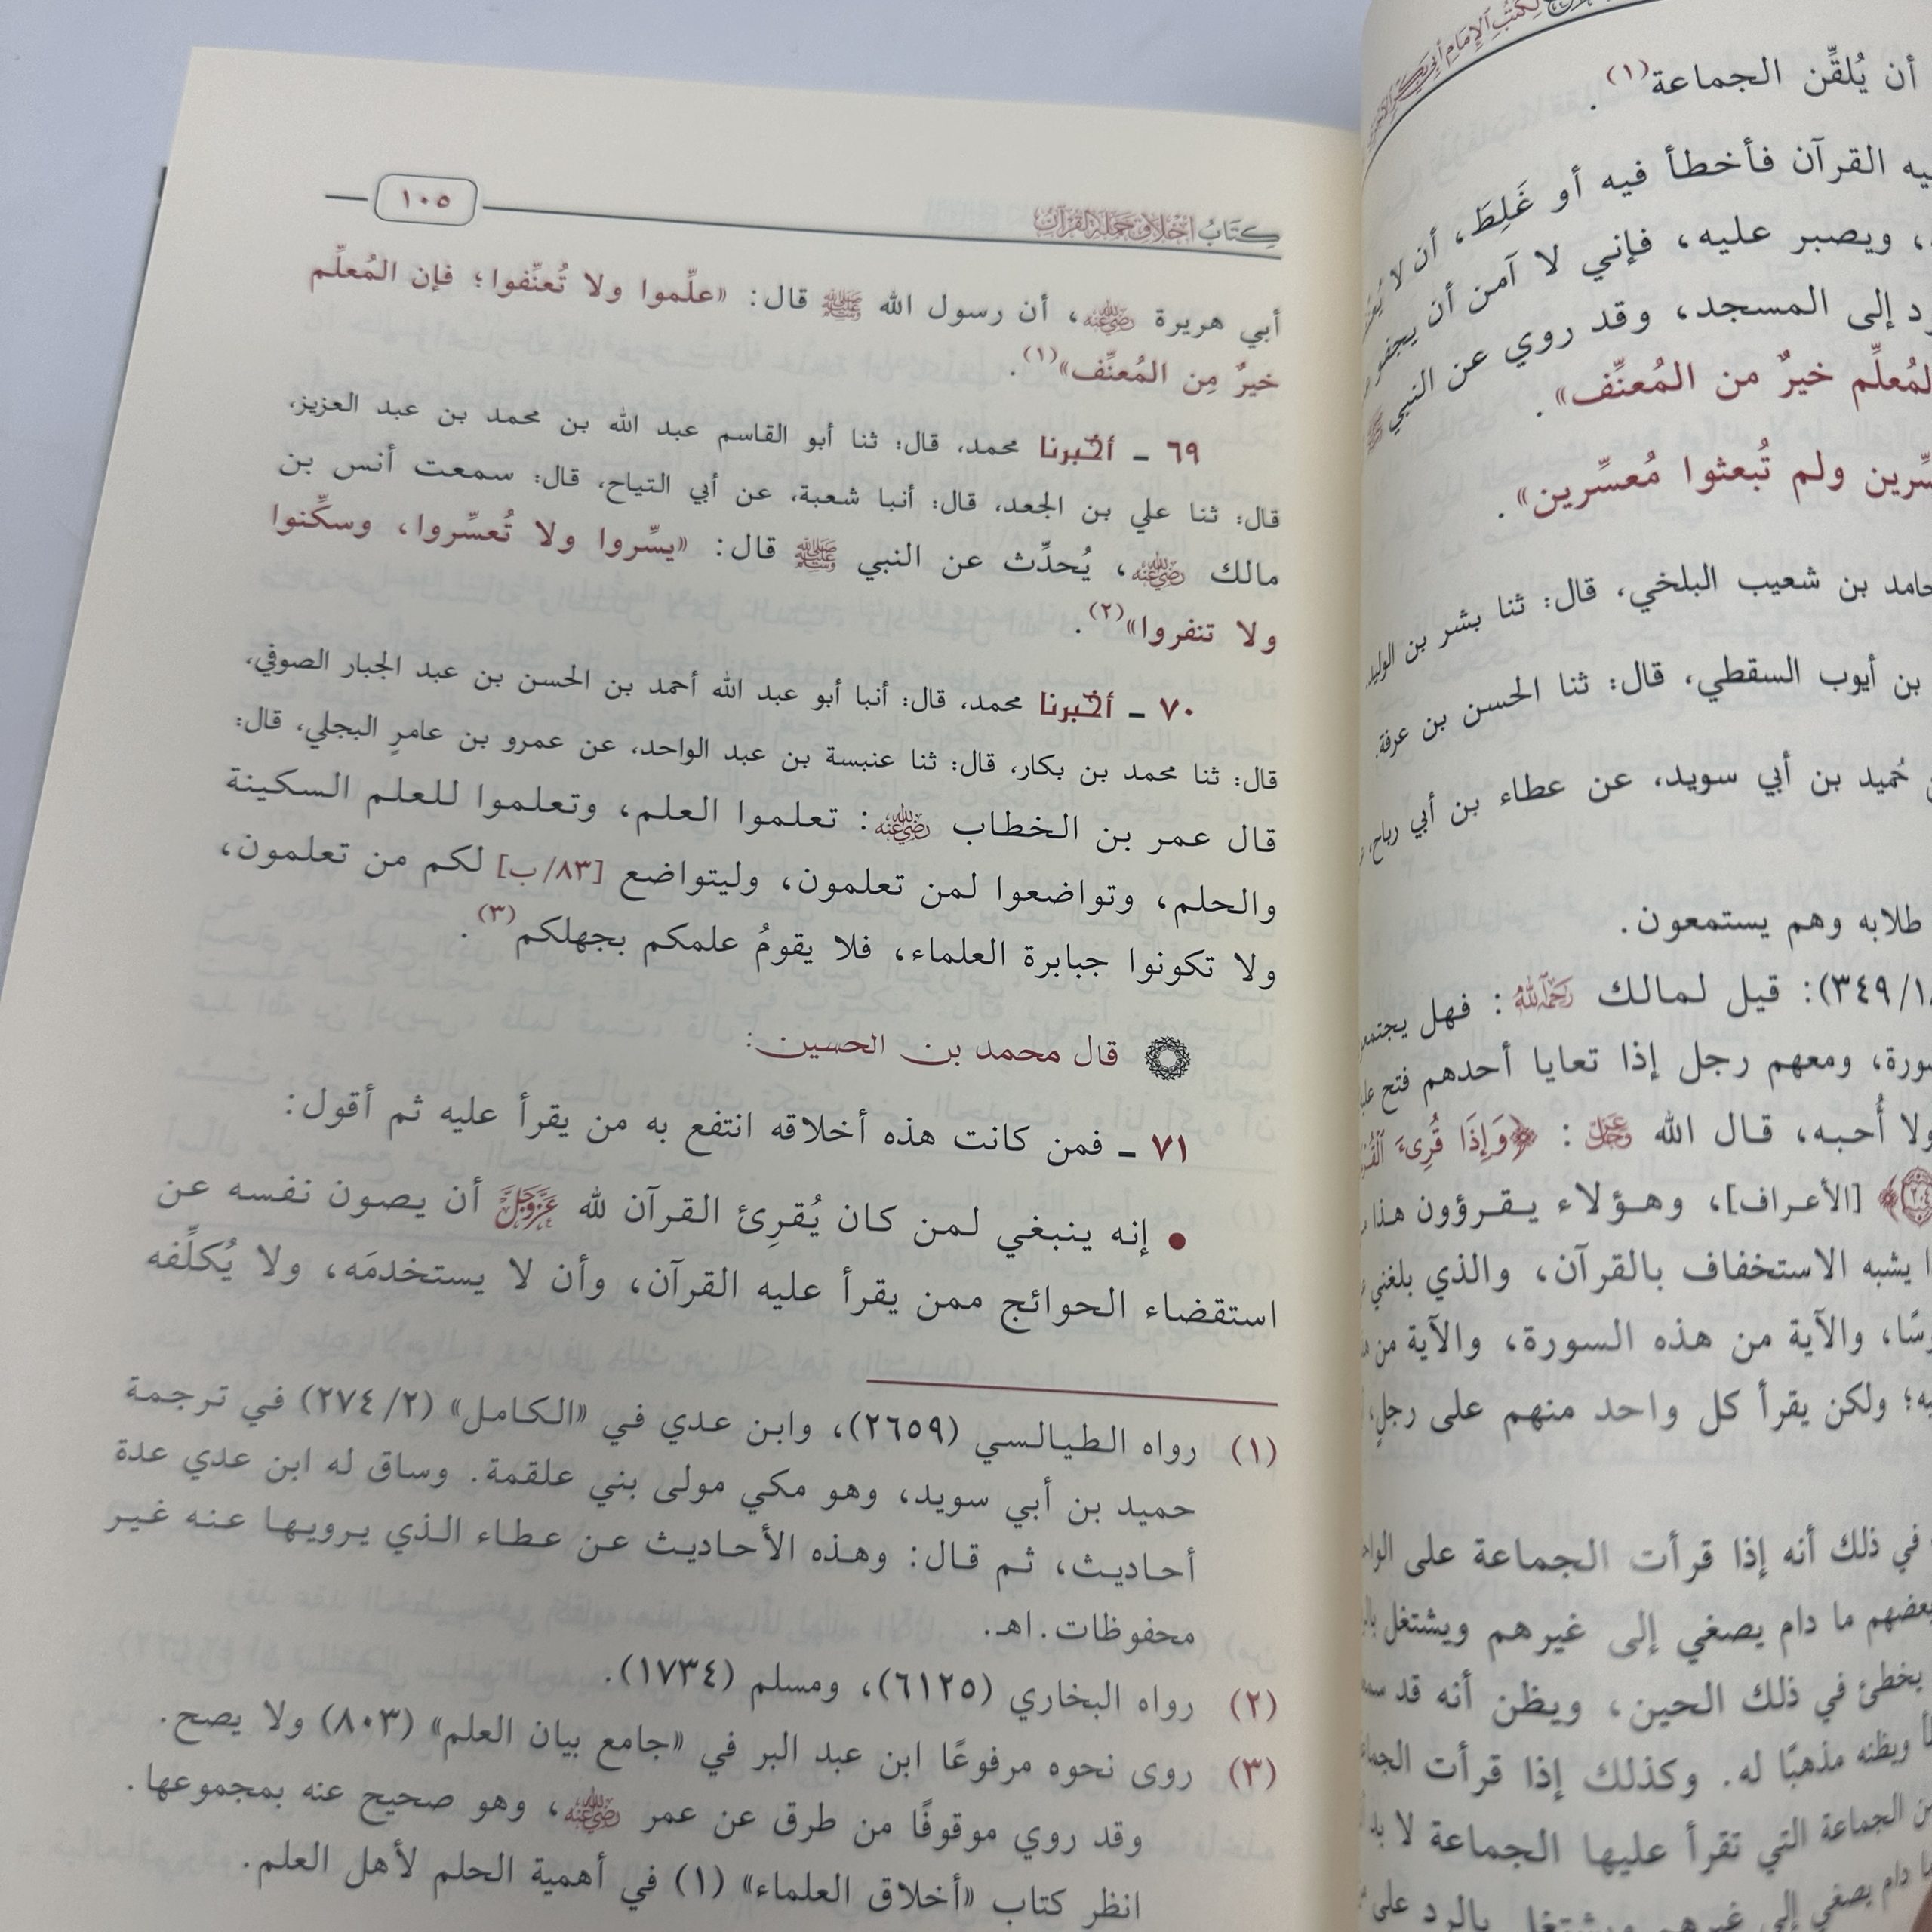 لكتب الإمام أبي بكر
أن يُلقِّن الجماعة(١).
القرآن فأخطأ فيه أو غَلِطَ، أن لا
، ويصبر عليه، فإني لا آمن أن يجفو
إلى المسجد، وقد روي عن النبي ﷺ
المُعلِّم خيرٌ من المُعنِّف».
ولم تُبعثوا مُعسِّرين».
حامد بن شعيب البلخي، قال: ثنا بشر بن الوليد
بن أيوب السقطي، قال: ثنا الحسن بن عرفة.
حُميد بن أبي سويد، عن عطاء بن أبي رباح،
طلابه وهم يستمعون.
٣٤٩): قيل لمالك رَحِمَهُ اللَّهُ: فهل يجتمع
ومعهم رجل إذا تعايا أحدهم فتح
ولا أُحبه، قال الله عَزَّ وَجَلَّ: ﴿وَإِذَا قُرِئَ
﴾ [الأعراف]، وهؤلاء يقرؤون هذا
يشبه الاستخفاف بالقرآن، والذي بلغني
والآية من هذه السورة، والآية من
؛ ولكن يقرأ كل واحد منهم على رجلٍ
في ذلك أنه إذا قرأت الجماعة على
بعضهم ما دام يصغي إلى غيرهم ويشتغل
يخطئ في ذلك الحين، ويظن أنه قد
ويظنه مذهبًا له. وكذلك إذا قرأت
الجماعة التي تقرأ عليها الجماعة لا بد
دام يصغي إلى غيرهم ويشتغل بالرد على
كِتَابُ أَخْلَاقِ حَمَلَةِ القُرْآنِ
١٠٥
أبي هريرة رَضِيَ اللَّهُ عَنْهُ، أن رسول الله ﷺ قال: «علِّموا ولا تُعنِّفوا؛ فإن المُعلِّم
خيرٌ مِن المُعنِّف»(١).
٦٩ ـ أخبرنا محمد، قال: ثنا أبو القاسم عبد الله بن محمد بن عبد العزيز،
قال: ثنا علي بن الجعد، قال: أنبا شعبة، عن أبي التياح، قال: سمعت أنس بن
مالك رَضِيَ اللَّهُ عَنْهُ، يُحدِّث عن النبي ﷺ قال: «يسِّروا ولا تُعسِّروا، وسكِّنوا
ولا تنفروا»(٢).
٧٠ ـ أخبرنا محمد، قال: أنبا أبو عبد الله أحمد بن الحسن بن عبد الجبار الصوفي،
قال: ثنا محمد بن بكار، قال: ثنا عنبسة بن عبد الواحد، عن عمرو بن عامرٍ البجلي، قال:
قال عمر بن الخطاب رَضِيَ اللَّهُ عَنْهُ: تعلموا العلم، وتعلموا للعلم السكينة
والحلم، وتواضعوا لمن تعلمون، وليتواضع [٨٣/ب] لكم من تعلمون،
ولا تكونوا جبابرة العلماء، فلا يقومُ علمكم بجهلكم(٣).
قال محمد بن الحسين:
٧١ ـ فمن كانت هذه أخلاقه انتفع به من يقرأ عليه ثم أقول:
• إنه ينبغي لمن كان يُقرِئ القرآن لله عَزَّ وَجَلَّ أن يصون نفسه عن
استقضاء الحوائج ممن يقرأ عليه القرآن، وأن لا يستخدمَه، ولا يُكلِّفه
(١) رواه الطيالسي (٢٦٥٩)، وابن عدي في «الكامل» (٢/٢٧٤) في ترجمة
حميد بن أبي سويد، وهو مكي مولى بني علقمة. وساق له ابن عدي عدة
أحاديث، ثم قال: وهذه الأحاديث عن عطاء الذي يرويها عنه غير
محفوظات. اهـ.
(٢) رواه البخاري (٦١٢٥)، ومسلم (١٧٣٤).
(٣) روى نحوه مرفوعًا ابن عبد البر في «جامع بيان العلم» (٨٠٣) ولا يصح.
وقد روي موقوفًا من طرق عن عمر رَضِيَ اللَّهُ عَنْهُ، وهو صحيح عنه بمجموعها.
انظر كتاب «أخلاق العلماء» (١) في أهمية الحلم لأهل العلم.